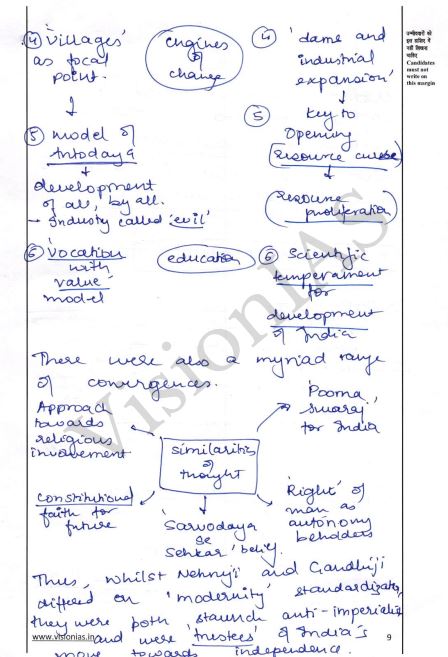 ④ 'Villages' as focal point.
engines of change
④ 'dams and industrial expansion'
↓
⑤ model of Antodaya
↓
development of all, by all.
→ Industry called 'evil'
↓
⑤ key to opening
resource curse
↓
resource proliferation
⑥ Vocation with value model
education
⑥ Scientific temperament for development of India
There were also a myriad range
of convergences.
Approach towards religious involvement
'Poorna swaraj' for India
similarities of thought
constitutional faith for future
'Sarvodaya se Sehkar' belief.
'Right' of man as autonomy beholders
Thus, whilst Nehruji and Gandhiji
differed on 'modernity' standardization,
they were both 'staunch anti-imperialist
and were 'trustees' of India's
move towards independence.
उम्मीदवारों को
इस हाशिए में
नहीं लिखना
चाहिए
Candidates
must not
write on
this margin
VisionIAS
www.visionias.in
9